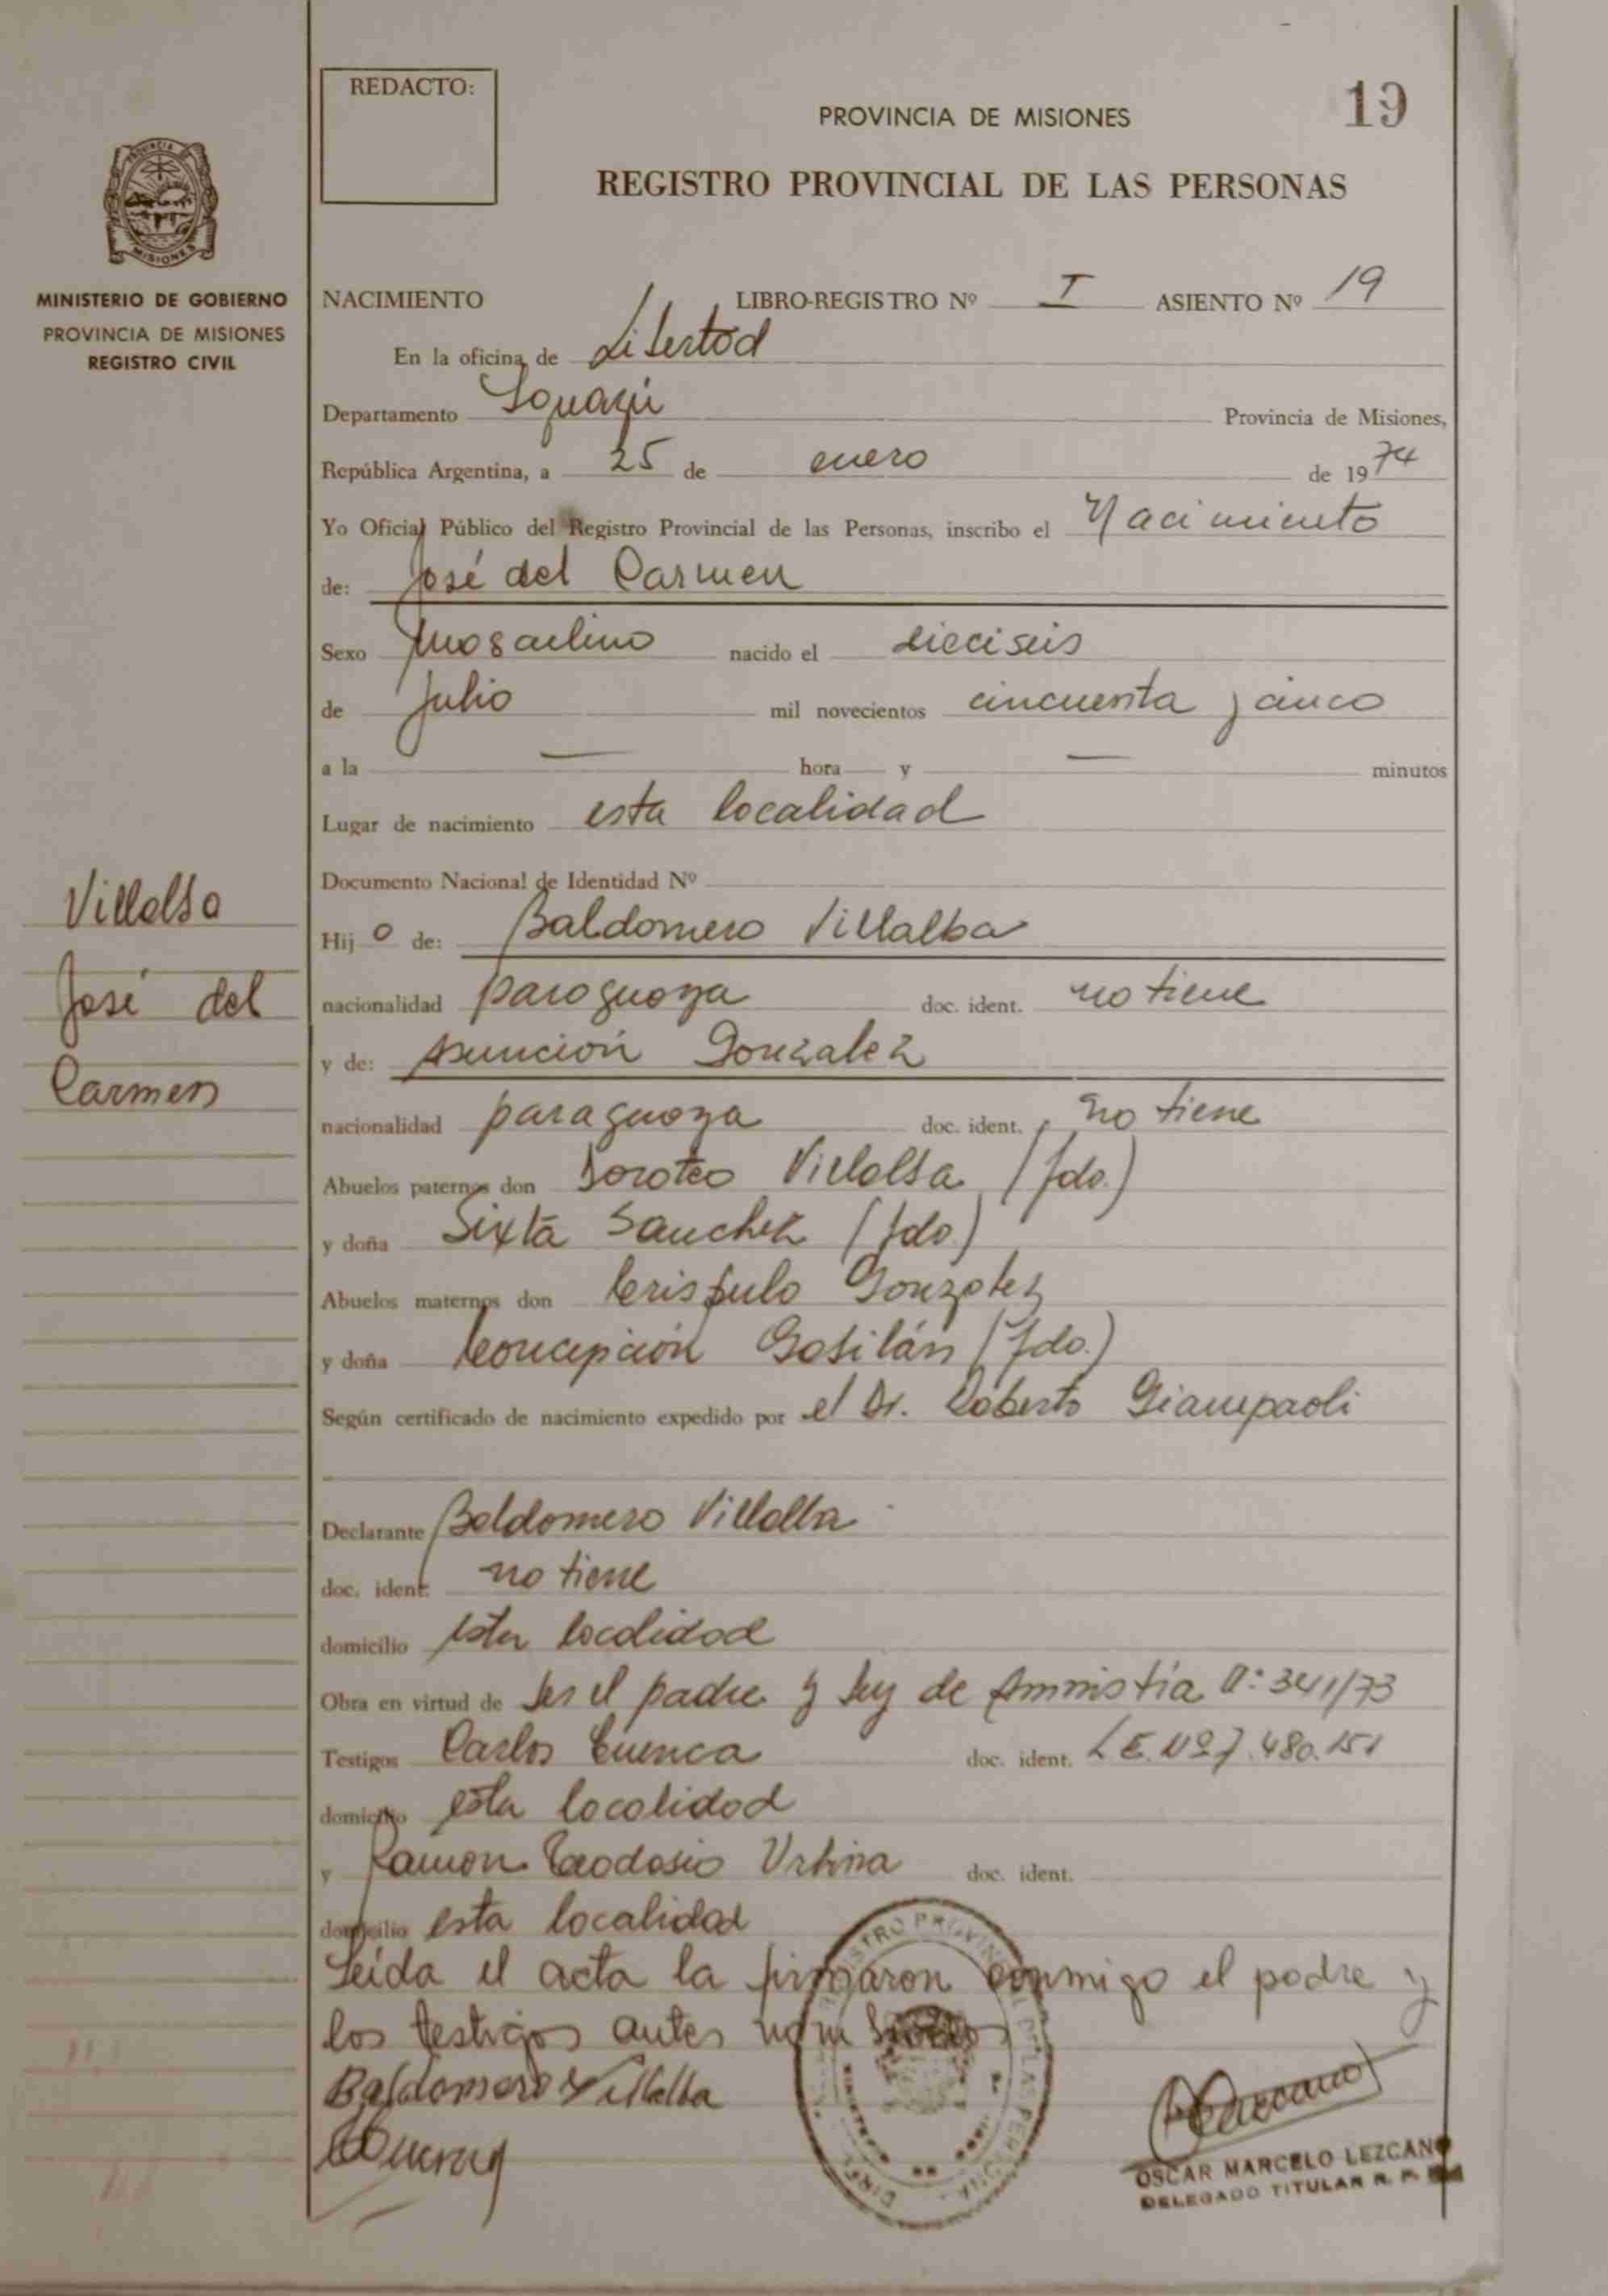 REDACTO:
PROVINCIA DE MISIONES
19
REGISTRO PROVINCIAL DE LAS PERSONAS
MINISTERIO DE GOBIERNO
PROVINCIA DE MISIONES
REGISTRO CIVIL
NACIMIENTO LIBRO-REGISTRO Nº I ASIENTO Nº 19
En la oficina de Libertad
Departamento Iguazú Provincia de Misiones,
República Argentina, a 25 de enero de 1974
Yo Oficial Público del Registro Provincial de las Personas, inscribo el Nacimiento
de: José del Carmen
Sexo masculino nacido el dieciseis
de Julio mil novecientos cincuenta y cinco
a la — hora y — minutos
Lugar de nacimiento esta localidad
Documento Nacional de Identidad Nº
Villalba
José del
Carmen
Hijo de: Baldomero Villalba
nacionalidad paraguaya doc. ident. no tiene
y de: Asunción Gonzalez
nacionalidad paraguaya doc. ident. no tiene
Abuelos paternos don Doroteo Villalba (fdo.)
y doña Sixta Sanchez (fdo)
Abuelos maternos don Crispulo Gonzalez
y doña Concepción (fdo.)
Según certificado de nacimiento expedido por el Dr. Roberto Giampaoli
Declarante Baldomero Villalba
doc. ident. no tiene
domicilio esta localidad
Obra en virtud de ser el padre y ley de Amnistía nº 341/73
Testigos Carlos Cuenca doc. ident. L.E. Nº 7.480.151
domicilio esta localidad
y Ramon Teodosio Urbina doc. ident.
domicilio esta localidad
Leída el acta la firmaron conmigo el padre y
los testigos antes nombrados
Baldomero Villalba
OSCAR MARCELO LEZCANO
DELEGADO TITULAR R. P.